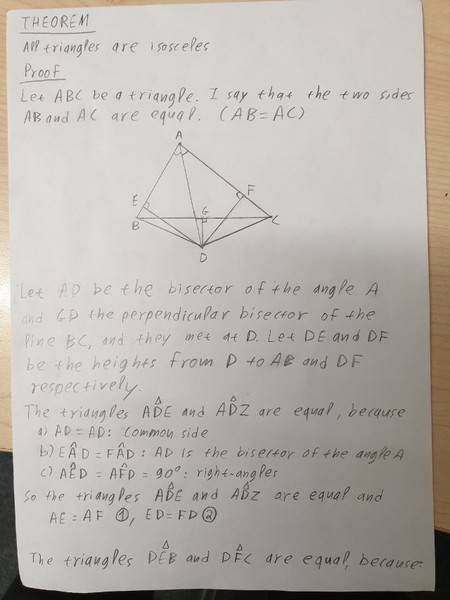 THEOREM
All triangles are isosceles
Proof
Let ABC be a triangle. I say that the two sides
AB and AC are equal. (AB=AC)
A
E
F
G
B
C
D
Let AD be the bisector of the angle A
and GD the perpendicular bisector of the
line BC, and they met at D. Let DE and DF
be the heights from D to AB and DF
respectively.
The triangles AD̂E and AD̂Z are equal, because
a) AD=AD: Common side
b) EÂD = FÂD: AD is the bisector of the angle A
c) AÊD = AF̂D = 90°: right-angles
So the triangles AD̂E and AD̂Z are equal and
AE = AF ①, ED=FD ②
The triangles DÊB and DF̂C are equal, because: